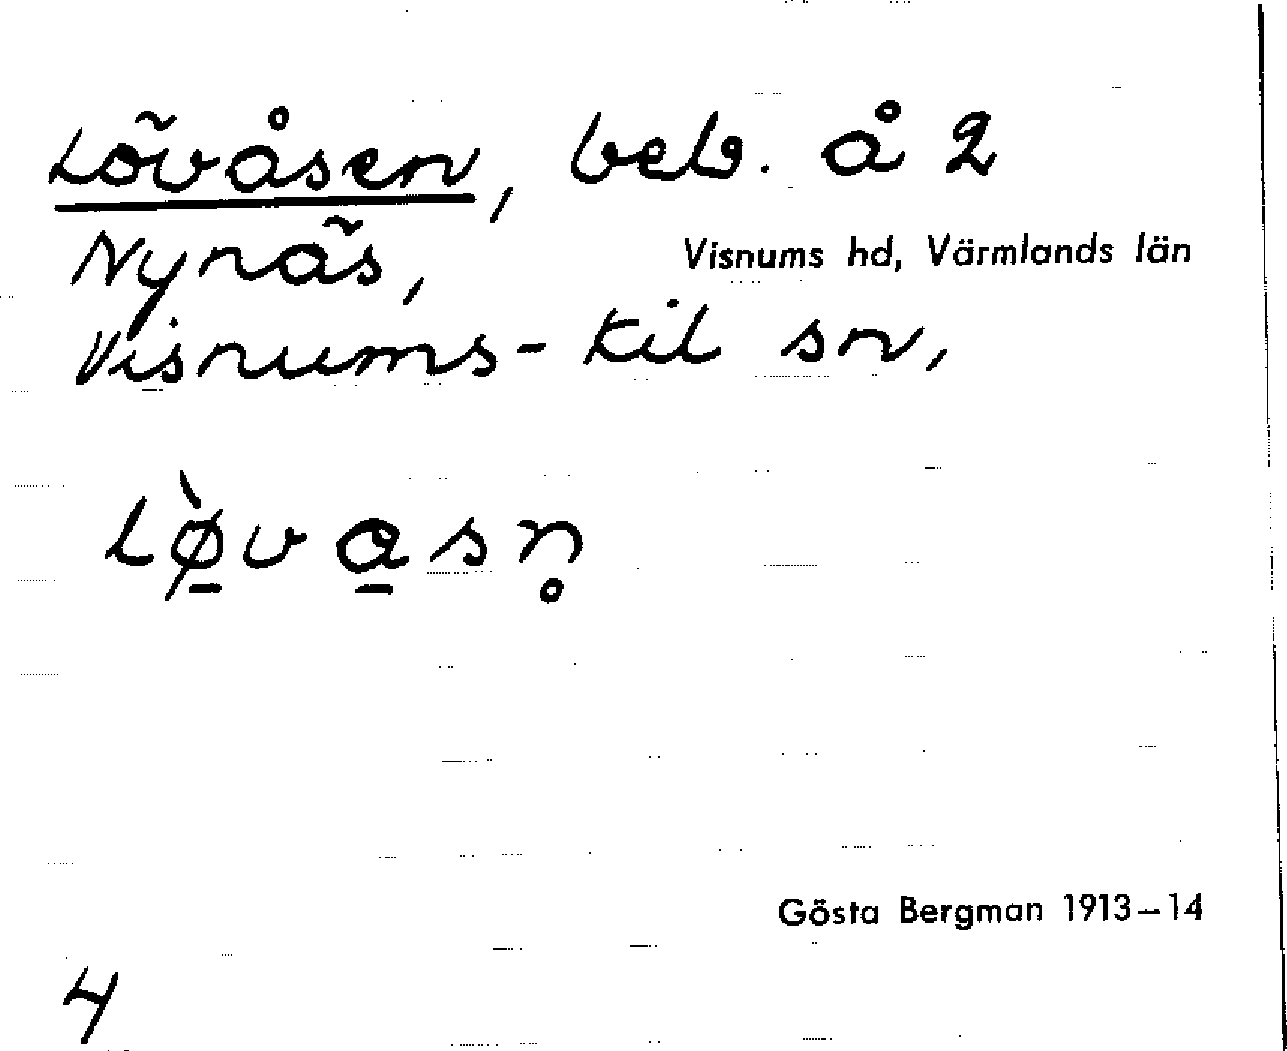 Lövåsen, beb. å 2
Nynäs,
Visnums hd, Värmlands län
Visnums-Kil sn,
lø̱̀va̱sn̥
Gösta Bergman 1913–14
4